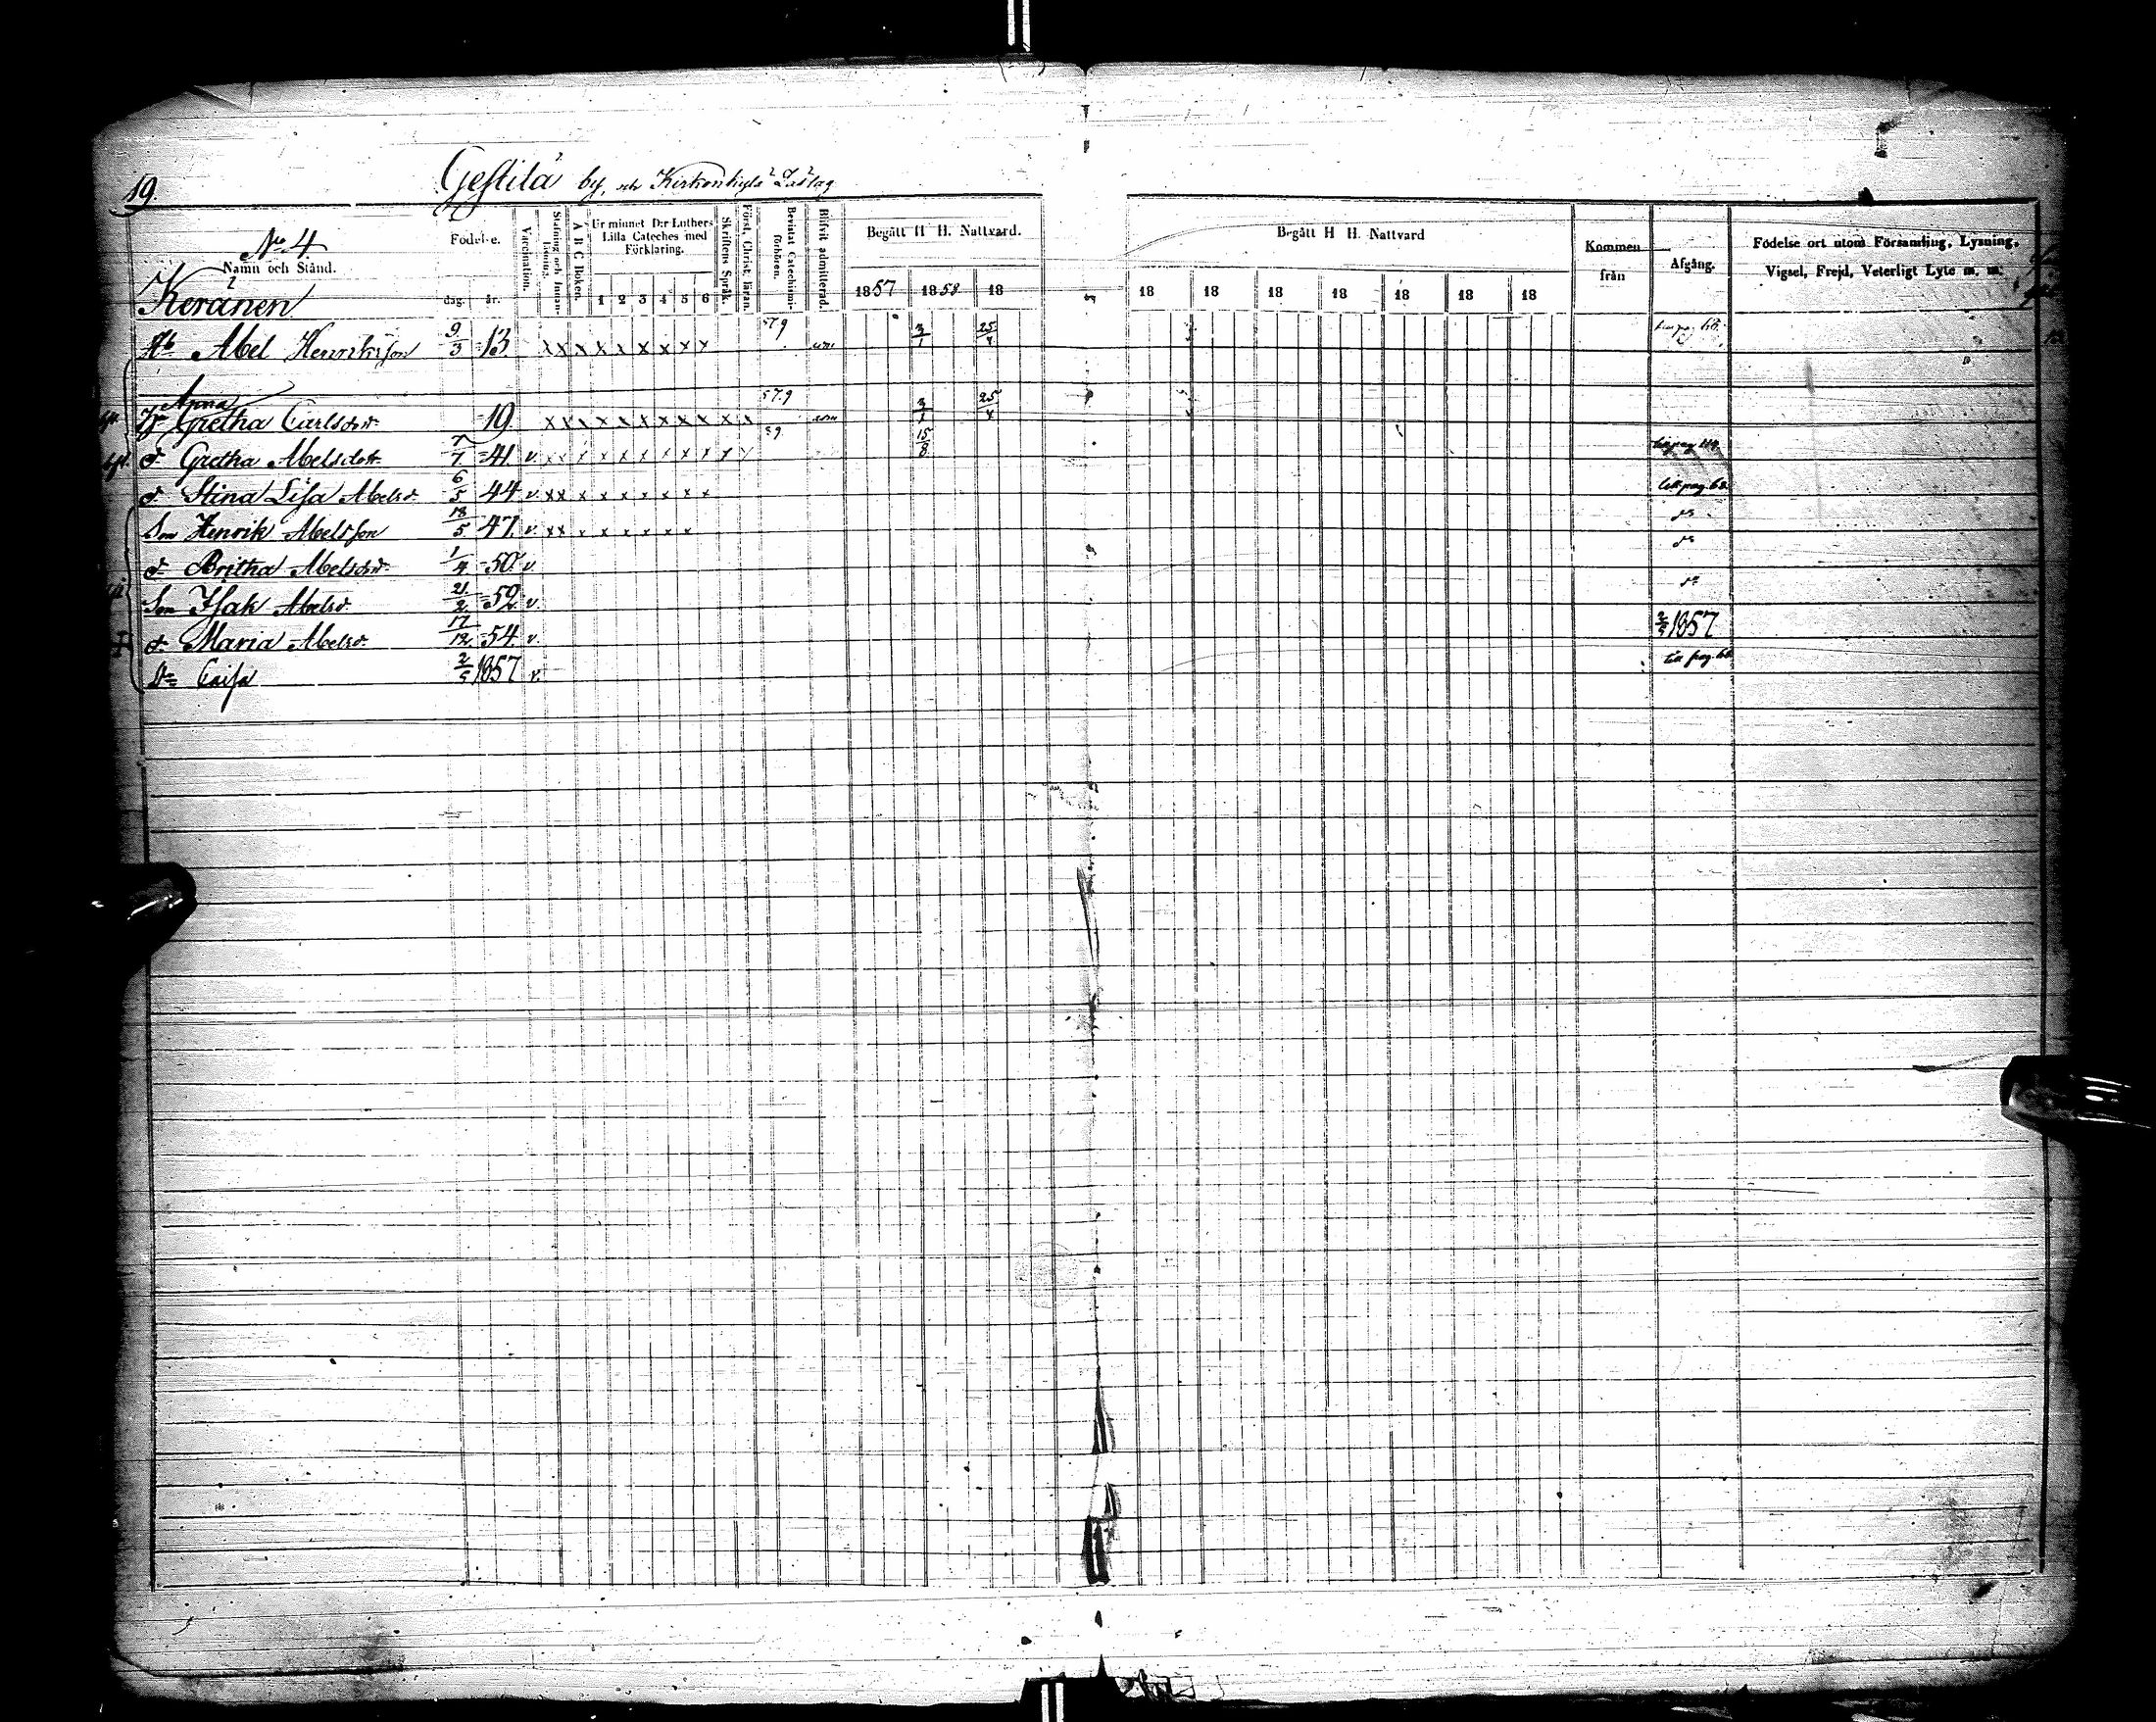 19.
Gestilä by, och Kirkonkylä Läslag
No 4
Namn och Stånd.
Födelse.
dag. år.
Vaccination.
Stafning och Innanläsning.
A B C Boken.
Ur minnet D:r Luthers Lilla Cateches med Förklaring.
1 2 3 4 5 6
Skriftens Språk.
Först. Christ. läran.
Bevistat Catechismi-förhören.
Blifvit admitterad.
Begått H H. Nattvard.
1857 1858 18
Begått H H. Nattvard
18 18 18 18 18 18 18
Kommen från
Afgång.
Födelse ort utom Församling, Lysning, Vigsel, Frejd, Veterligt Lyte m. m.
Keränen
Abel Henriksson 9/3 13 x x x x x x x x x 57.9 3/1 25/4
Anna
Gretha Carlsdr 19 x x x x x x x x x x x 57.9 3/1 25/4
d. Gretha Abelsdotr 7/7 41 v. x x x x x x x x x x x 59 15/8
d. Stina Lisa Abelsd. 6/5 44 v. x x x x x x x x x till pag. 68
Son Henrik Abelsson 18/5 47. v. x x x x x x x x do
d. Britha Abelsdr 1/4 50 v. do
Son Isak Abelss. 21/2 52 v. do
d. Maria Abelsd. 17/12 54. v. 2/5 1857
Dr Caisa 2/5 1857 v. till pag. 68